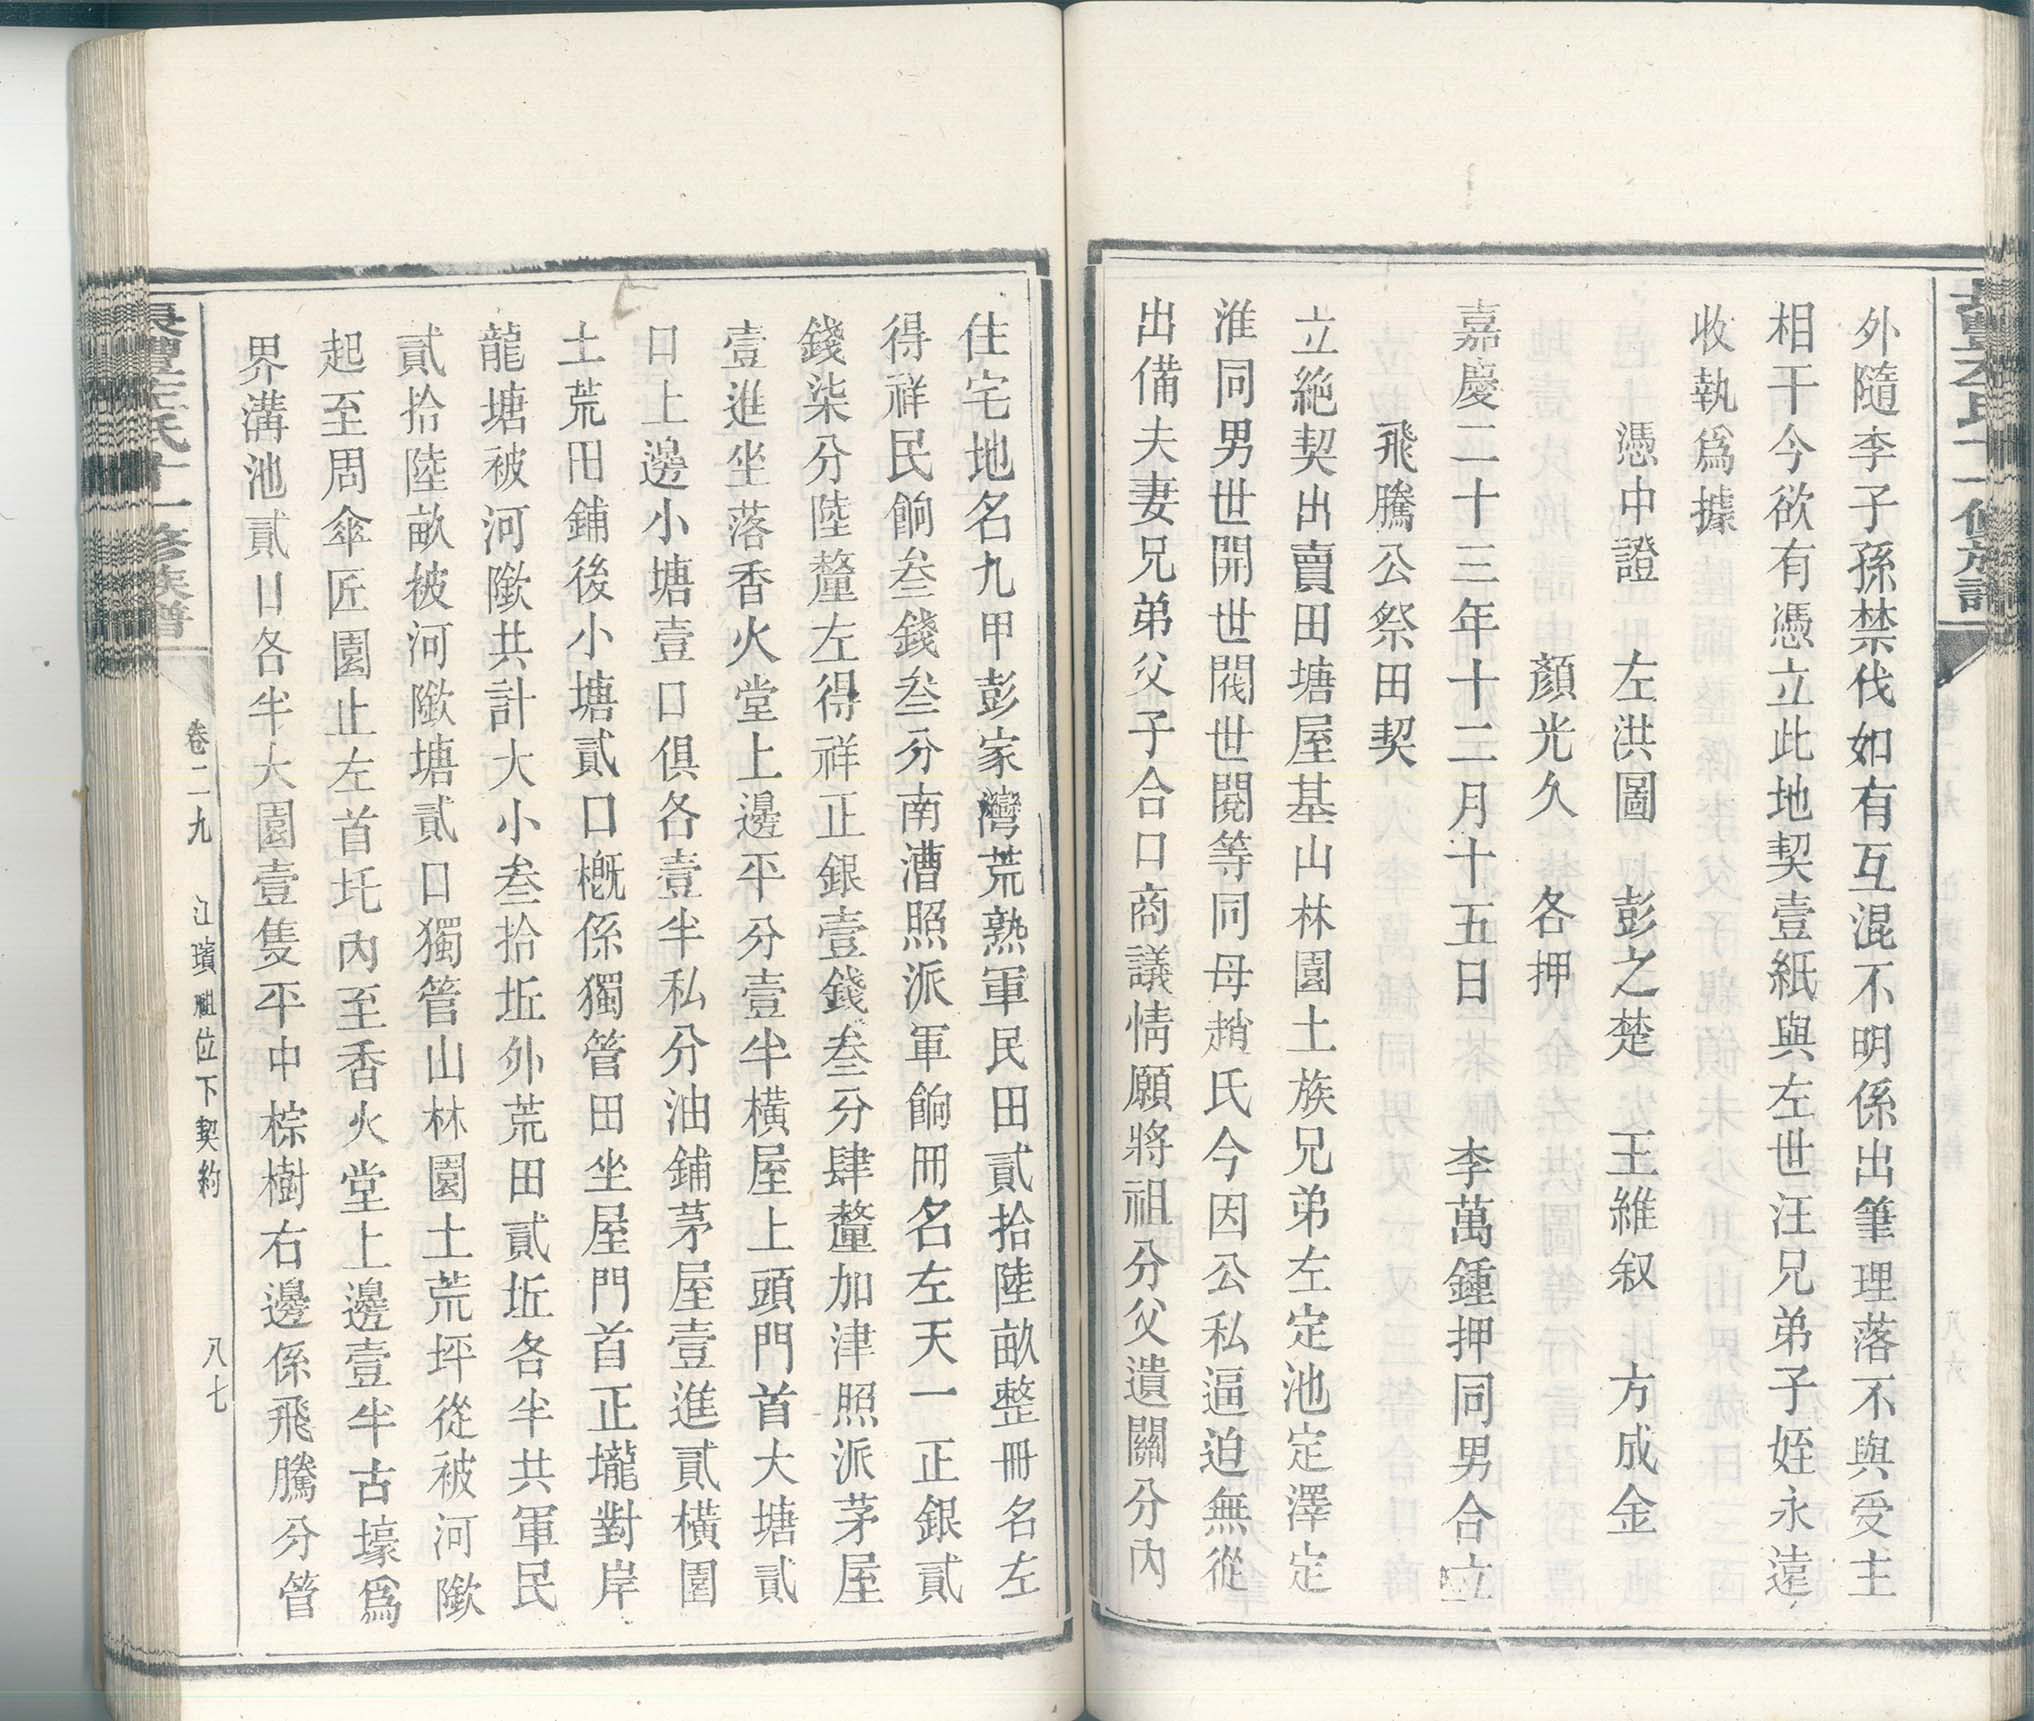 外隨李子孫禁伐如有互混不明係出筆理落不與受主
相干今欲有憑立此地契壹紙與左世汪兄弟子姪永遠
收執爲據
憑中證　左洪圖　彭之楚　王維叙　方成金
顏光久　各押
嘉慶二十三年十二月十五日　李萬鍾押同男合立
飛騰公祭田契
立絶契出賣田塘屋基山林園土族兄弟左定池定澤定
淮同男世開世閥世閱等同母趙氏今因公私逼迫無從
出備夫妻兄弟父子合口商議情願將祖分父遺關分內
住宅地名九甲彭家灣荒熟軍民田貳拾陸畝整冊名左
得祥民餉叁錢叁分南漕照派軍餉冊名左天一正銀貳
錢柒分陸釐左得祥正銀壹錢叁分肆釐加津照派茅屋
壹進坐落香火堂上邊平分壹半橫屋上頭門首大塘貳
口上邊小塘壹口俱各壹半私分油鋪茅屋壹進貳橫園
土荒田鋪後小塘貳口槪係獨管田坐屋門首正壠對岸
龍塘被河歟共計大小叁拾坵外荒田貳坵各半共軍民
貳拾陸畝被河歟塘貳口獨管山林園土荒坪從被河歟
起至周傘匠園止左首圫內至香火堂上邊壹半古壕爲
界溝池貳口各半大園壹隻平中棕樹右邊係飛騰分管
左氏十一修族譜
卷二九　江瓆祖位下契約　八七